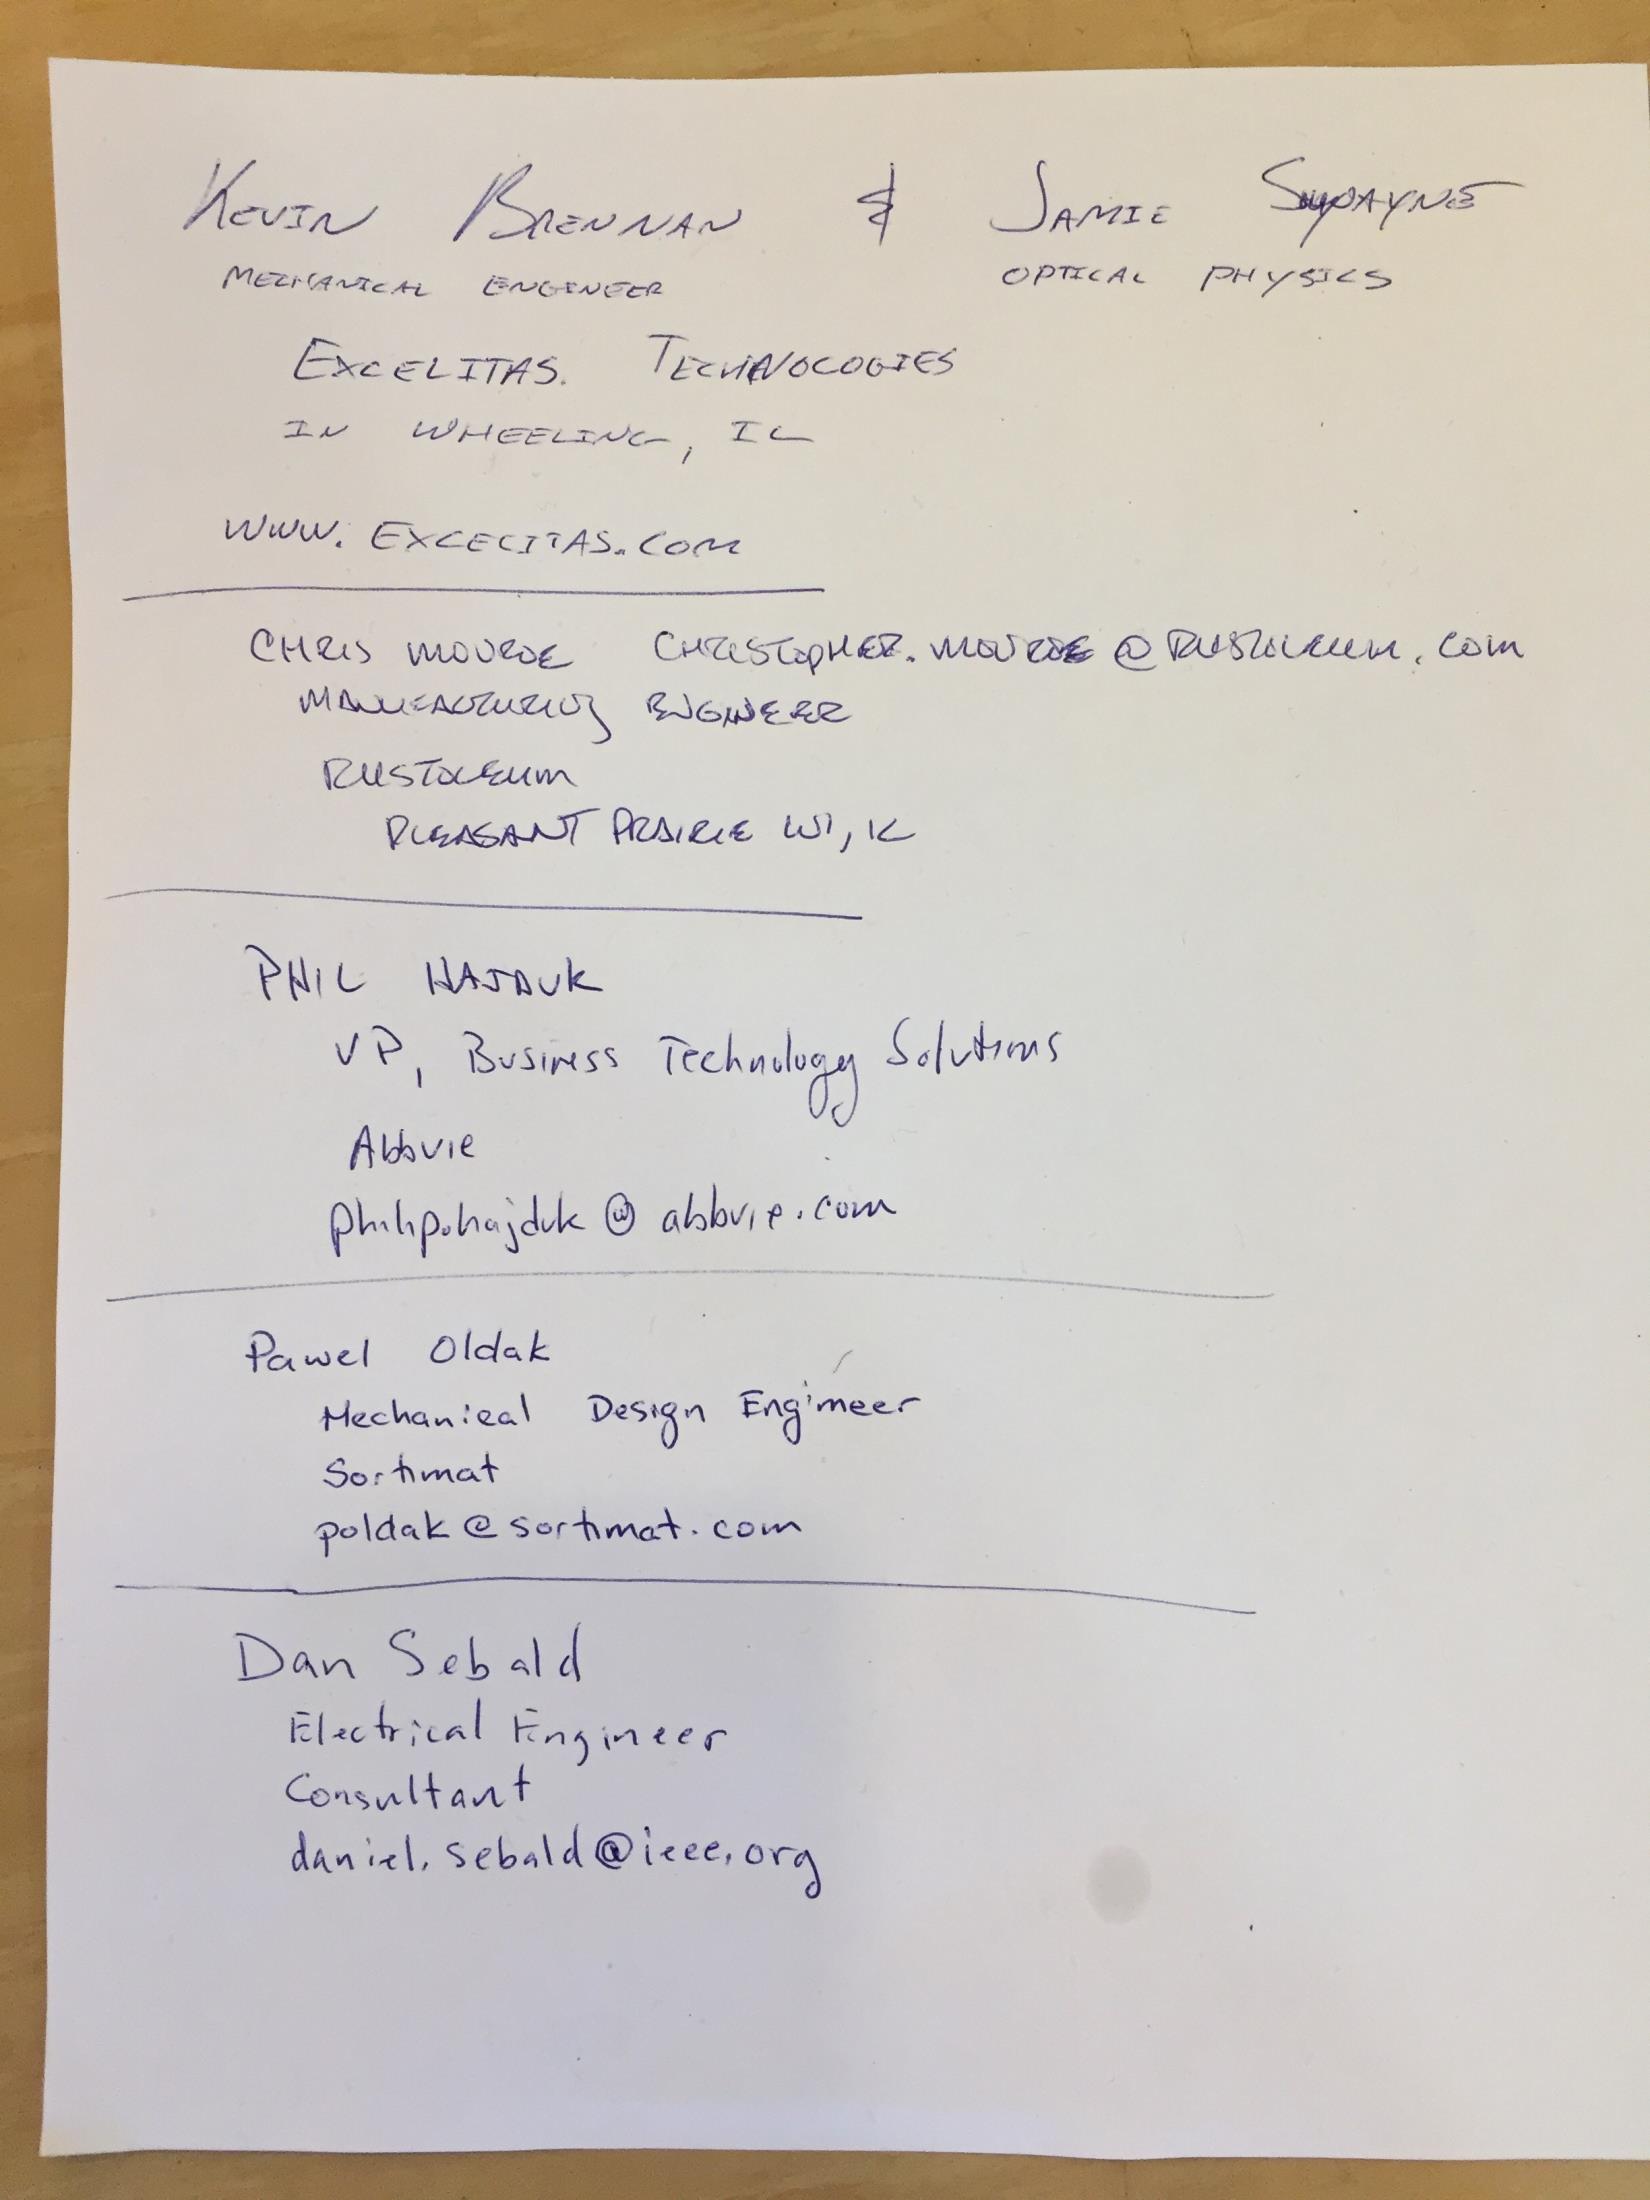 KEVIN BRENNAN & JAMIE
MECHANICAL ENGINEER OPTICAL PHYSICS
EXCELITAS. TECHNOLOGIES
IN WHEELING, IL
WWW. EXCELITAS.COM
CHRIS MONROE CHRISTOPHER.MONROE@RUSTOLEUM.COM
MANUFACTURING ENGINEER
RUSTOLEUM
PLEASANT PRAIRIE WI,
PHIL HAJDUK
VP, Business Technology Solutions
Abbvie
philip.hajduk@abbvie.com
Pawel Oldak
Mechanical Design Engineer
Sortimat
poldak@sortimat.com
Dan Sebald
Electrical Engineer
Consultant
daniel.sebald@ieee.org